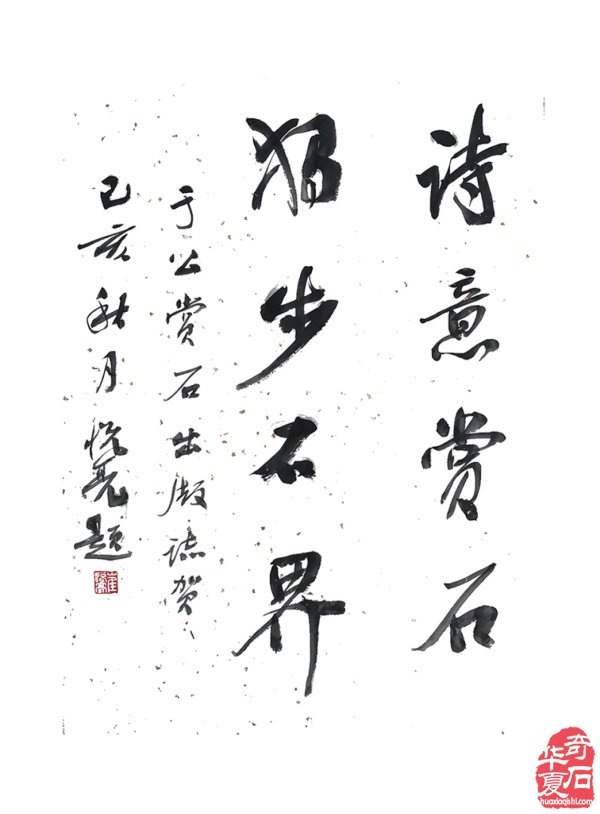 诗意赏石
独步石界
于公赏石出版誌贺
己亥秋月悦亮题
华夏奇石
huaxiaqishi.com